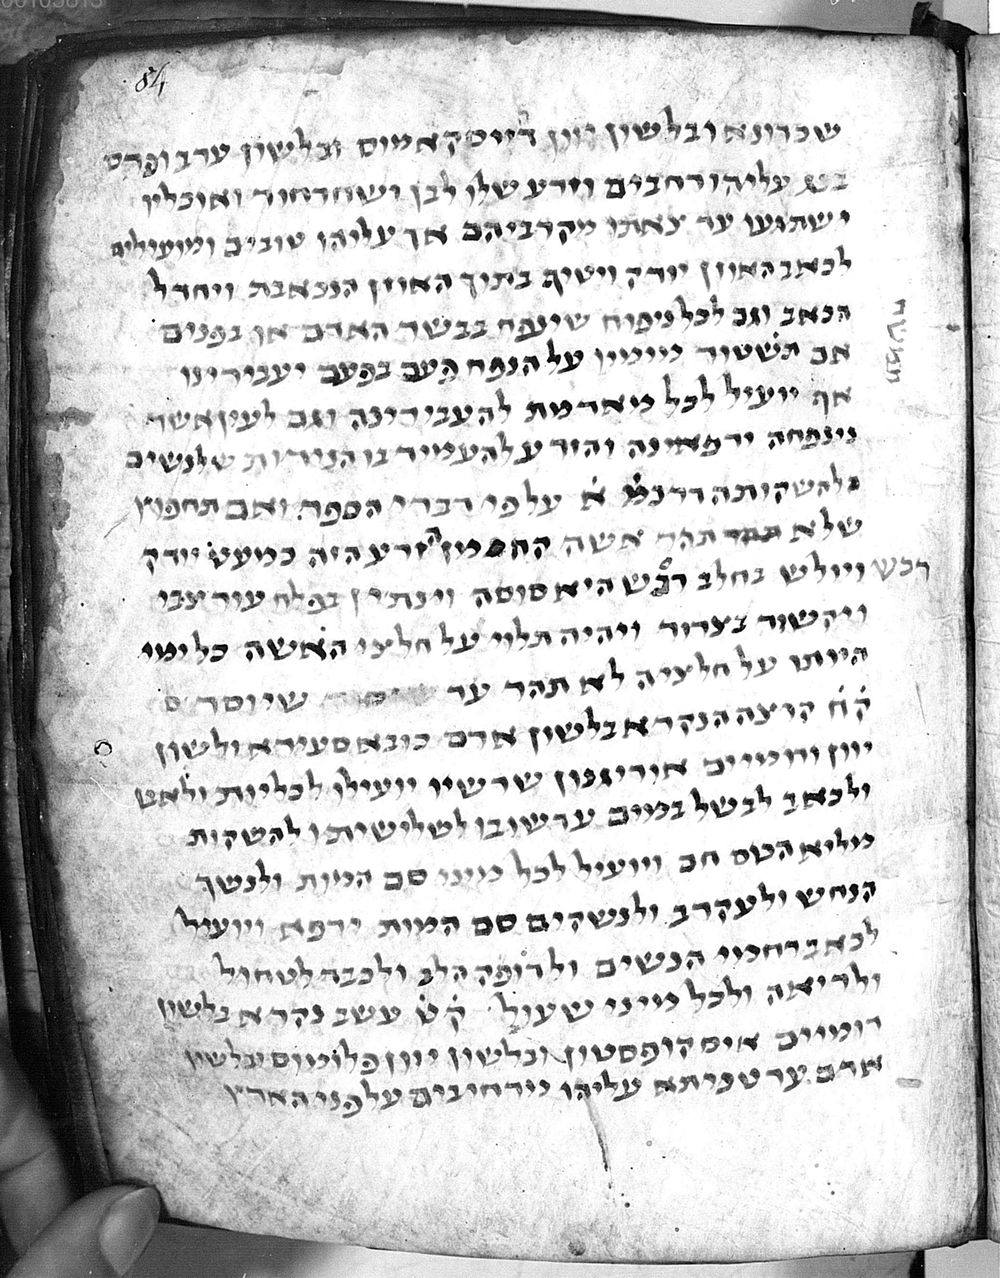 84
שכרונא ובלשון יוון דייסקאמוס ובלשון ערב ופרס
בנג עליהו רחבים וזרע שלו לבן ושחרחור ואוכליו
ישתגעו עד צאתו מקרביהם אך עליהו טובים ומועילים
לכאב האוזן יודק ויטיף בתוך האוזן הנכאבת ויחדל
הכאב וגם לכל ניפוח שינפח בבשר האדם או בפנים
אם תשטור מימיו על הנפח פעם בפעם יעבירינו
אף יועיל לכל מאדמת להעבירינה וגם לעין אשר
נינפחה ירפאינה והזר על להעמיד בו הנידות שלנשים
בלהשקותה דרכמ֗ א֗ על פי דברי הספר ואם תחפוץ
שלא תהר אשה קח מן הזרע הזה כמעט יודק
ויולש בחלב רכש היא סוסה וינתין בפלח עור צבי
רכש
ויקשור בצרור ויהיה תלוי על חלצי האשה כל ימי
היותו על חלציה לא תהר עד שיוסר
ק֗ח֗ קוצה הנקרא בלשון ארם כובא סעירא ולשון
יוון ורומיים אוריגנון שרשיו יועילו לכליות ולאט
ולכאב לבשל במים עד שובו לשלישיתו להשקות
מליא הכוס חם ויועיל לכל מיני סם המות ולנשך
הנחש ולעקרב ולנשקים סם המות ירפא ויועיל
לכאב רחמי הנשים ולדופק הלב ולכבד לטחול
ולריאה ולכל מיני שעול ק֗ט֗ עשב נקרא בלשון
רומיים אוסקופסטון ובלשון יוון פלומוס ובלשון
ארם ער טניתא עליהו מירחיבים על פני הארץ